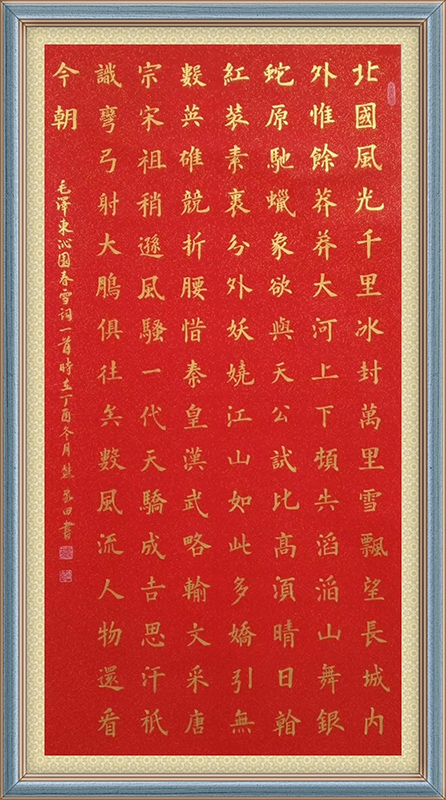 北國風光千里冰封萬里雪飄望長城內
外惟餘莽莽大河上下頓失滔滔山舞銀
蛇原馳蠟象欲與天公試比高須晴日看
紅裝素裹分外妖嬈江山如此多嬌引無
數英雄競折腰惜秦皇漢武略輸文采唐
宗宋祖稍遜風騷一代天驕成吉思汗祇
識彎弓射大鵰俱往矣數風流人物還看
今朝
毛澤東沁園春雪詞一首時在丁酉冬月熊田書